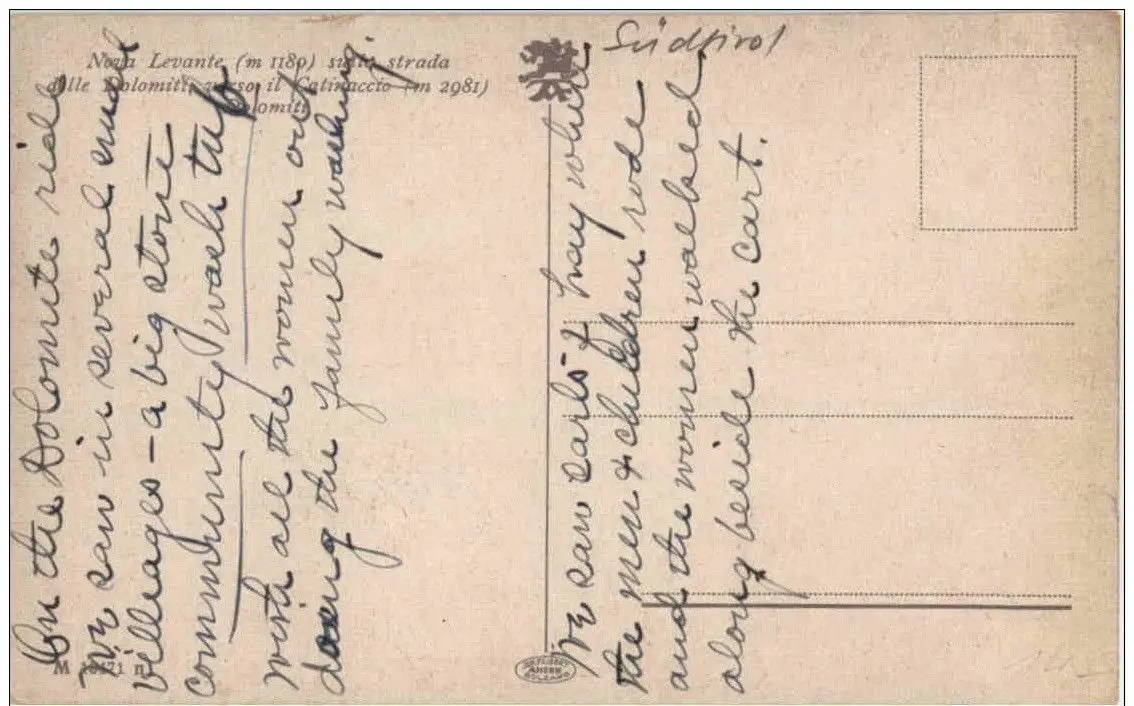 Nova Levante (m 1180) sulla strada
delle Dolomiti, verso il Catinaccio (m 2981)
Dolomiti
On the Dolomite ride
We saw in several small
villages - a big stone
community wash tub
with all the women out
doing the family washing.
Südtirol
We saw carts of hay where
the men & children rode
and the women walked
along beside the cart.
M
AMONN
BOLZANO